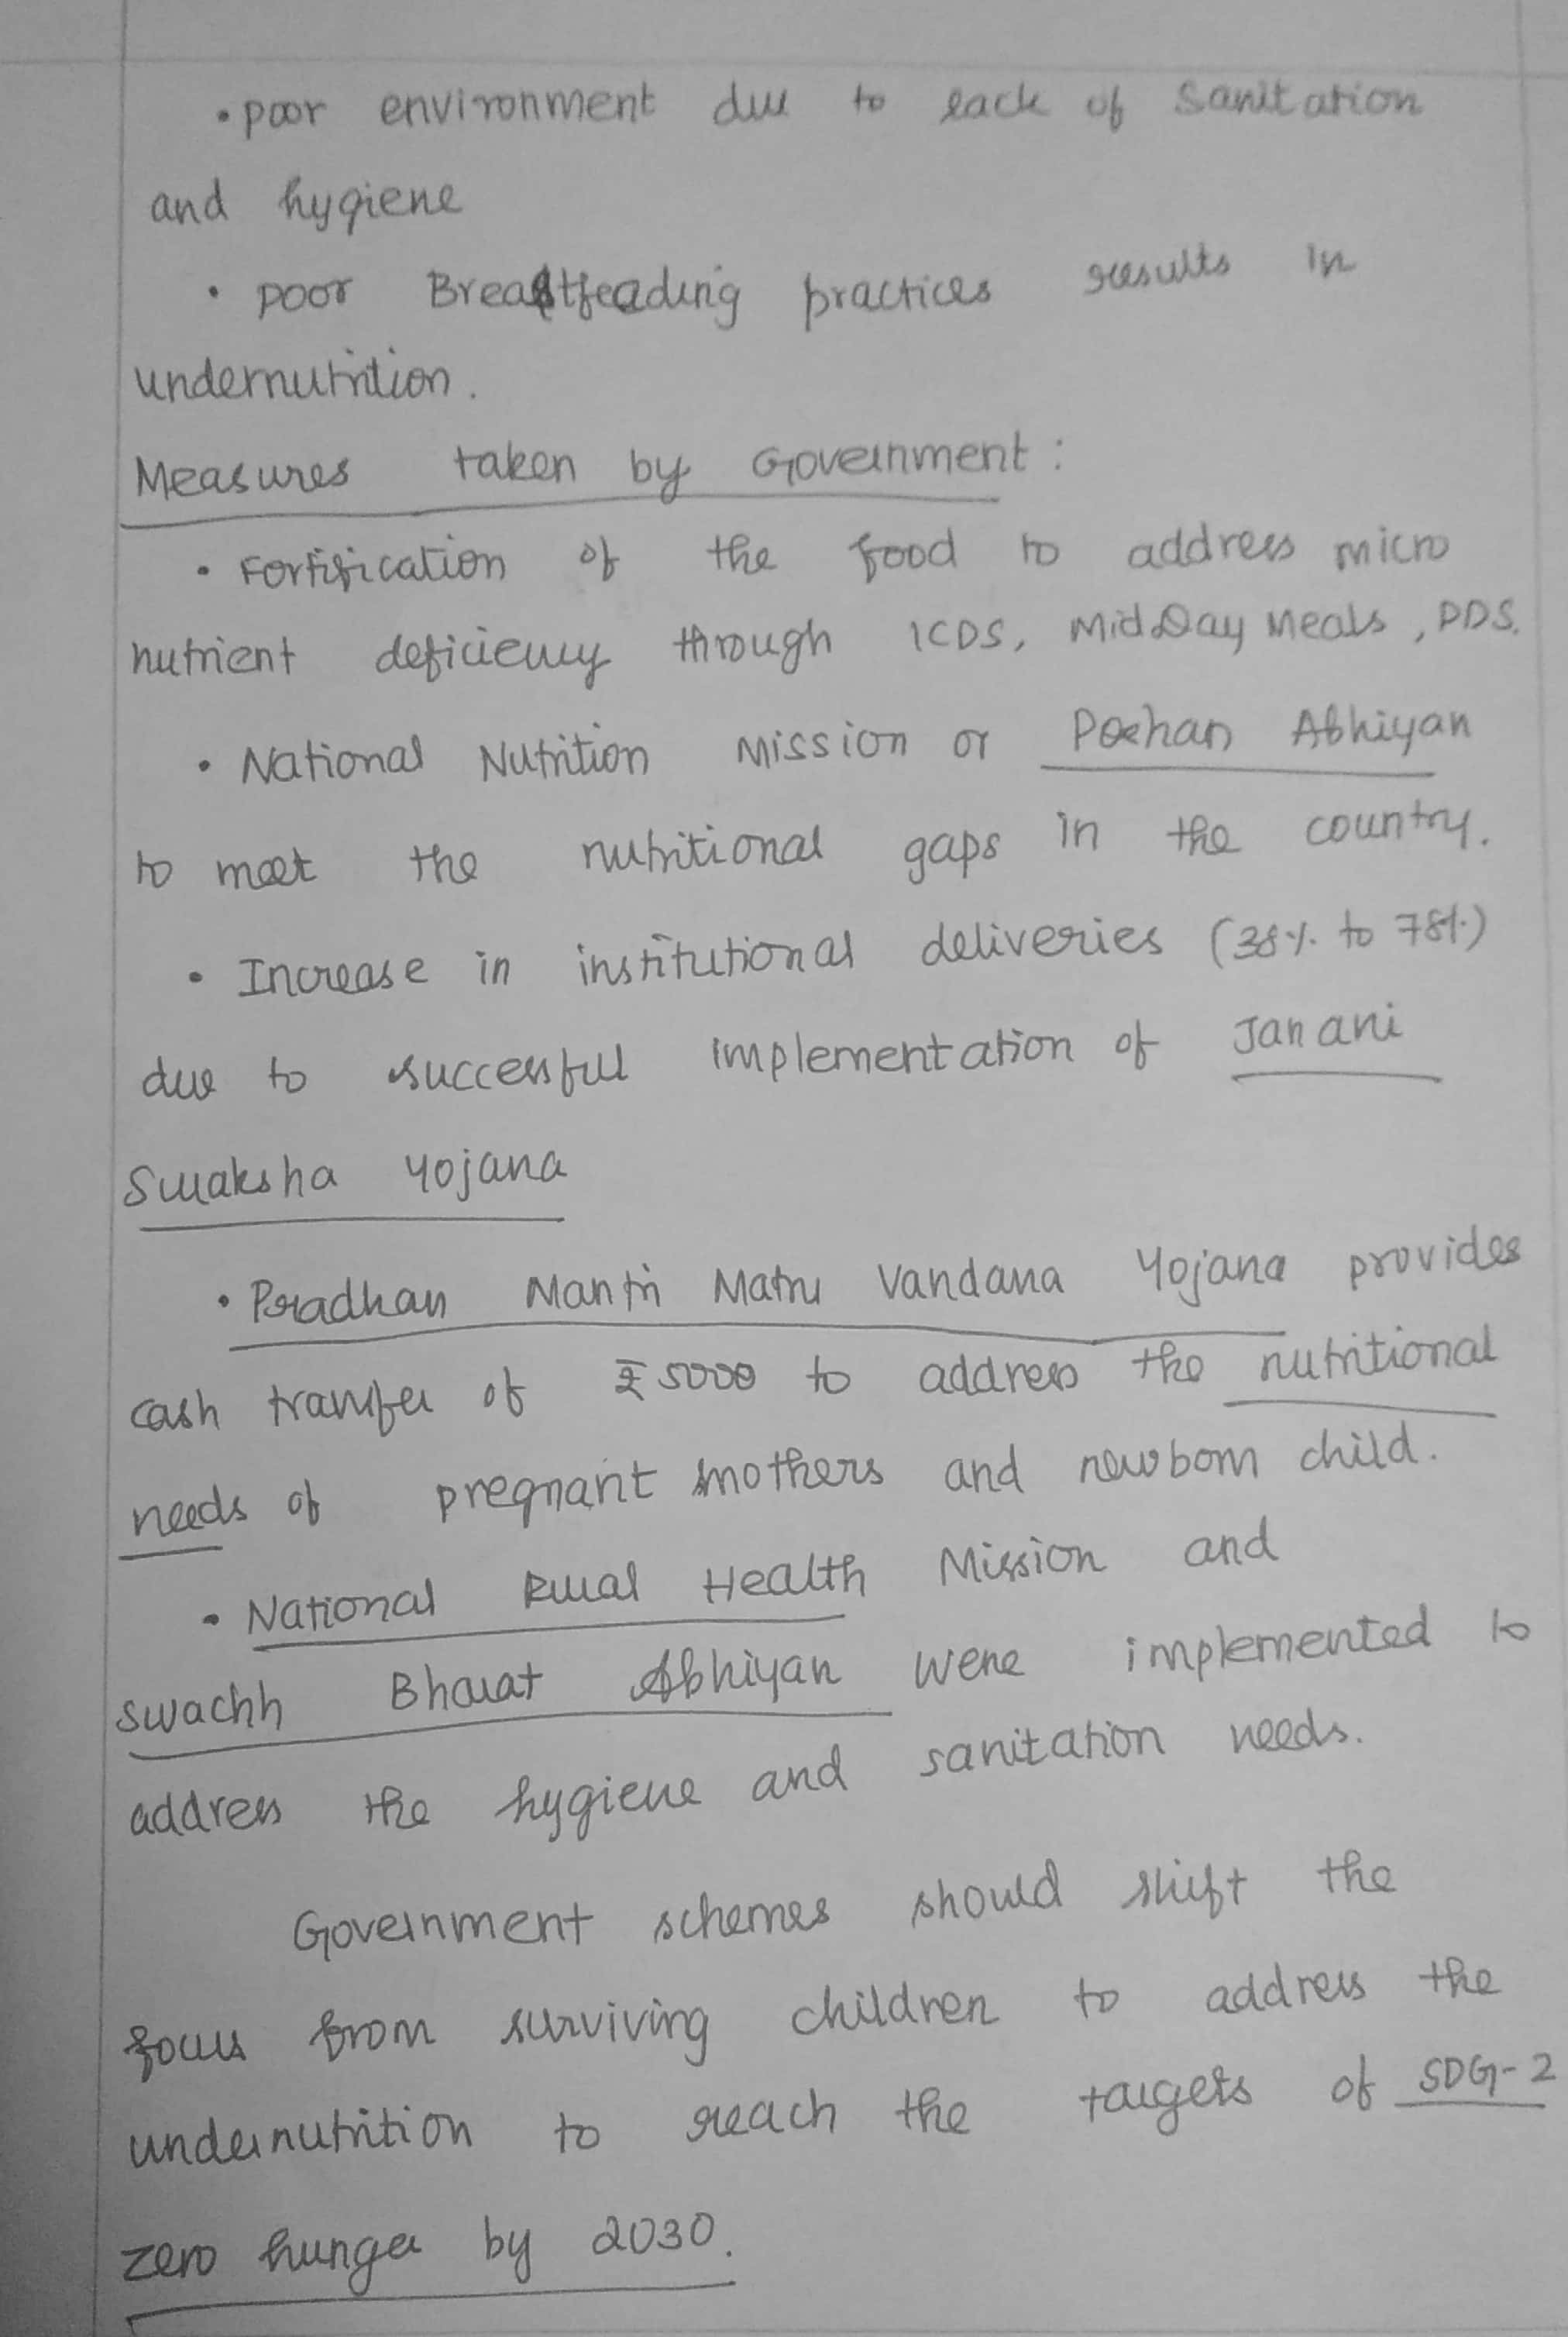 • poor environment due to lack of Sanitation
and hygiene
• poor Breastfeading practices results in
undernutrition.
Measures taken by Government :
• Fortification of the food to address micro
nutrient deficiency through ICDS, Mid Day Meals, PDS.
• National Nutrition Mission or Poshan Abhiyan
to meet the nutritional gaps in the country.
• Increase in institutional deliveries (38% to 78%)
due to successful implementation of Janani
Suraksha Yojana
• Pradhan Mantri Matru Vandana Yojana provides
cash transfer of ₹ 5000 to address the nutritional
needs of pregnant mothers and newborn child.
• National Rural Health Mission and
Swachh Bharat Abhiyan were implemented to
address the hygiene and sanitation needs.
Government schemes should shift the
focus from surviving children to address the
undernutrition to reach the targets of SDG-2
zero hunger by 2030.